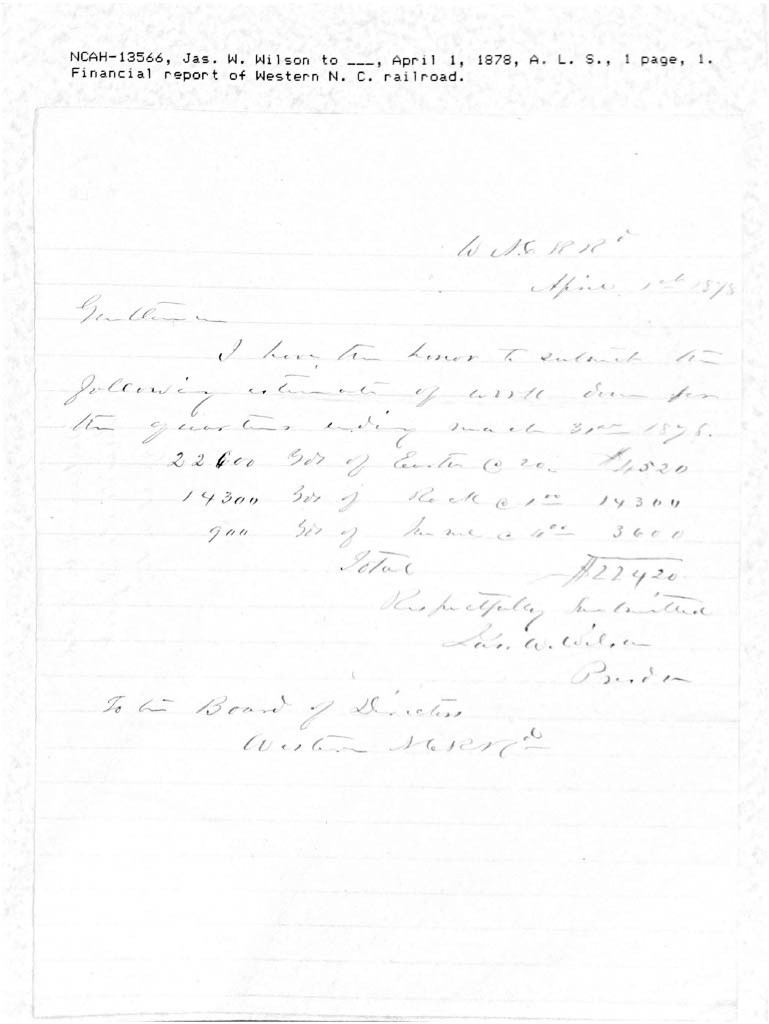 NCAH-13566, Jas. W. Wilson to ___, April 1, 1878, A. L. S., 1 page, 1.
Financial report of Western N. C. railroad.
W N. C R Rd
April 1st 1878
Gentlemen
I have the honor to submit the
following estimate of work done for
the quarter ending march 31st 1878.
22600 Yds of Earth @ 20c $4520
14300 Yds of Rock @ 1 00 14300
900 Yds of @ 4 00 3600
Total $22420
Respectfully Submitted
Jas. W. Wilson
Presdn
To the Board of Directors
Western N C R Rd